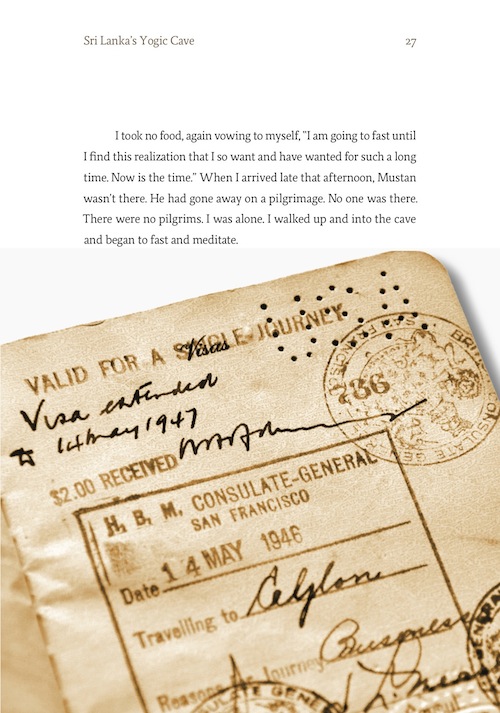 Sri Lanka's Yogic Cave 27
I took no food, again vowing to myself, "I am going to fast until
I find this realization that I so want and have wanted for such a long
time. Now is the time." When I arrived late that afternoon, Mustan
wasn't there. He had gone away on a pilgrimage. No one was there.
There were no pilgrims. I was alone. I walked up and into the cave
and began to fast and meditate.
VALID FOR A SINGLE JOURNEY
Visas
Visa extended
to 14 May 1947
$2.00 RECEIVED
786
H. B. M. CONSULATE-GENERAL
SAN FRANCISCO
Date 14 MAY 1946
Travelling to Ceylone
Business
Journey